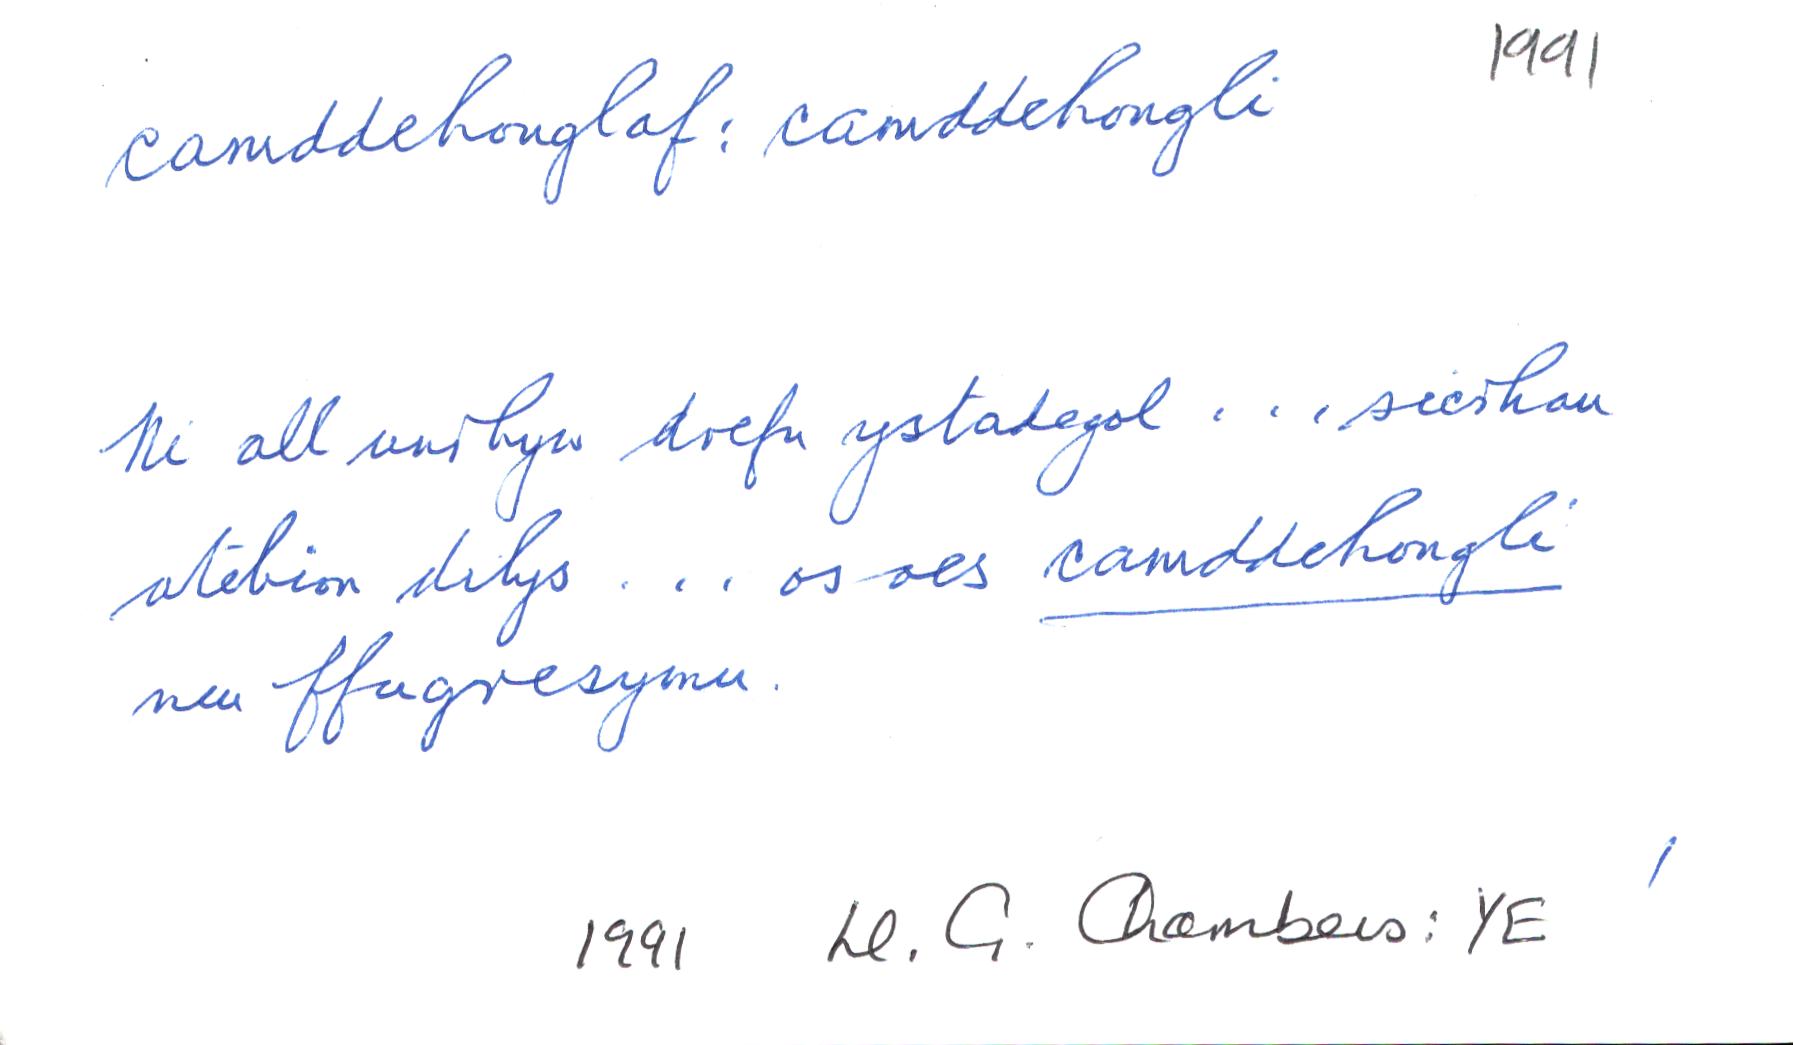 1991
camddehonglaf: camddehongli
Ni all unrhyw drefn ystadegol . . . sicrhau
atebion dilys . . . os oes camddehongli
neu ffugresymu.
1
1991 Ll. G. Chambers: YE